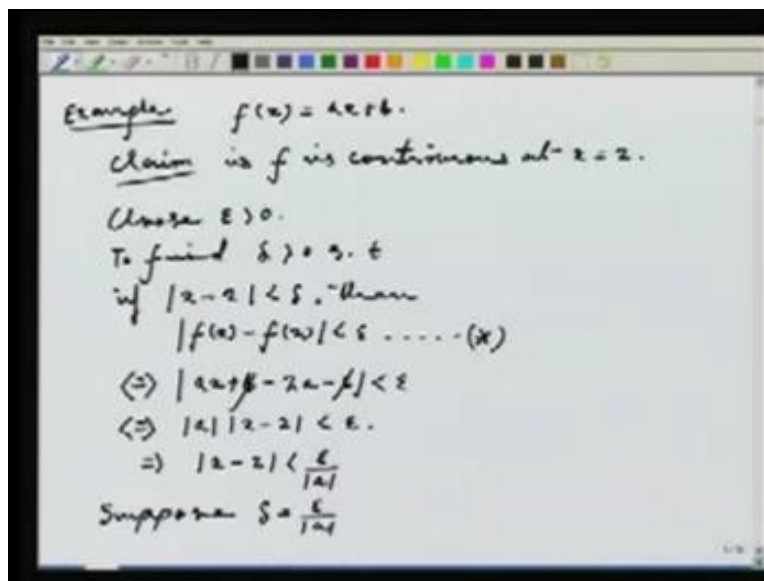 Example f(x) = ax+b.
Claim is f is continuous at x = 2.
Choose ε>0.
To find δ>0 s.t
if |x-2|<δ, then
|f(x)-f(2)|<ε .....(*)
<=> |ax+b-2a-b|<ε
<=> |a||x-2| < ε.
=> |x-2| < ε/|a|
Suppose δ = ε/|a|